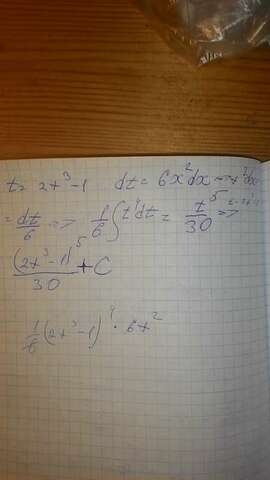 t = 2x³-1 dt = 6x²dx → x²dx
= dt/6 => 1/6 ∫ t⁴dt = t⁵/30 =>
(2x³-1)⁵/30 + C
1/6 (2x³-1)⁴ · 6x²